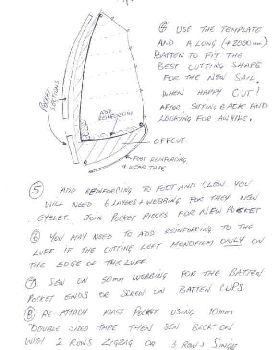 ④ USE THE TEMPLATE
AND A LONG (+2000mm)
BATTEN TO FIT THE
BEST CUTTING SHAPE
FOR THE NEW SAIL.
WHEN HAPPY CUT!
AFTER SITTING BACK AND
LOOKING FOR AWHILE.
POCKET
SECTIONS
ADD
REINFORCING
OFFCUT
FOOT REINFORCING
+ WEAR TAPE
⑤ ADD REINFORCING TO FOOT AND CLEW YOU
WILL NEED 6 LAYERS + WEBBING FOR THEY NEW
CYCLET. JOIN POCKET PIECES FOR NEW POCKET
⑥ YOU MAY NEED TO ADD REINFORCING TO THE
LUFF IF THE CUTTING LEFT MONOFILM ONLY ON
THE EDGE OF THE LUFF
⑦ SEW ON 50mm WEBBING FOR THE BATTEN
POCKET ENDS OR SCREW ON BATTEN CUPS
⑧ RE-ATTACH MAST POCKET USING 10mm
DOUBLE SIDED TAPE THEN SEW BACK ON
WITH 2 ROWS ZIGZAG OR 3 ROWS SINGLE